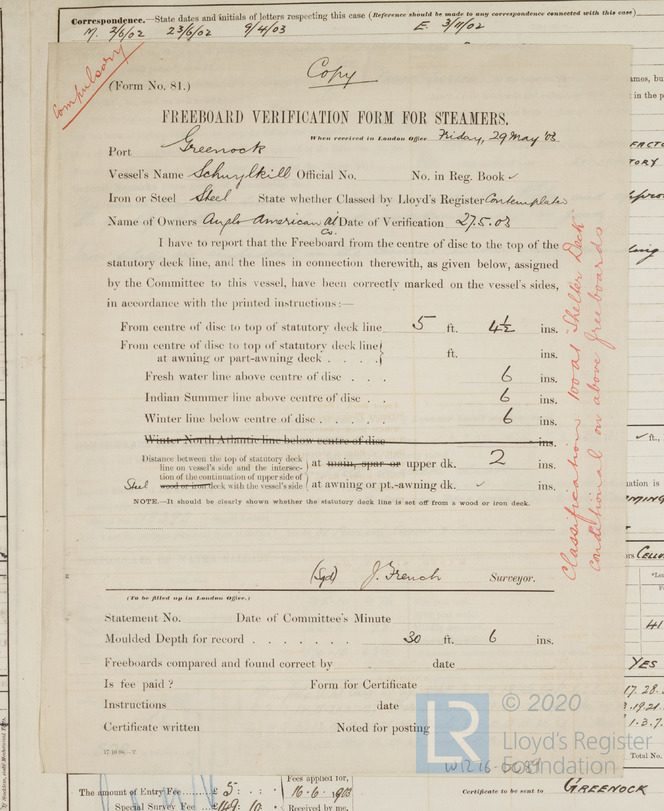 Correspondence.—State dates and initials of letters respecting this case (Reference should be made to any correspondence connected with this case)
M. 2/6/02 23/6/02 9/4/03 E. 3/11/02
Compulsory
Copy
(Form No. 81.)
FREEBOARD VERIFICATION FORM FOR STEAMERS.
When received in London Office Friday, 29 May '03
Port Greenock
Vessel's Name Schuylkill Official No. No. in Reg. Book ✓
Iron or Steel Steel State whether Classed by Lloyd's Register Contemplated
Name of Owners Anglo American Oil Co. Date of Verification 27.5.03
I have to report that the Freeboard from the centre of disc to the top of the
statutory deck line, and the lines in connection therewith, as given below, assigned
by the Committee to this vessel, have been correctly marked on the vessel's sides,
in accordance with the printed instructions:—
From centre of disc to top of statutory deck line 5 ft. 4½ ins.
From centre of disc to top of statutory deck line
at awning or part-awning deck . . . . ft. ins.
Fresh water line above centre of disc . . . 6 ins.
Indian Summer line above centre of disc . . 6 ins.
Winter line below centre of disc . . . . . 6 ins.
Winter North Atlantic line below centre of disc ins.
Distance between the top of statutory deck
line on vessel's side and the intersec-
tion of the continuation of upper side of
Steel wood or iron deck with the vessel's side
at main, spar or upper dk. 2 ins.
at awning or pt.-awning dk. ✓ ins.
NOTE.—It should be clearly shown whether the statutory deck line is set off from a wood or iron deck.
Classification 100A1 Shelter Deck
Conditional on above freeboards
(Sgd) J. French Surveyor.
(To be filled up in London Office.)
Statement No. Date of Committee's Minute
Moulded Depth for record . . . . . . . 30 ft. 6 ins.
Freeboards compared and found correct by date
Is fee paid ? Form for Certificate
Instructions date
Certificate written Noted for posting
LR © 2020
Lloyd's Register
Foundation
W1216-0089
YES
Total No.
The amount of Entry Fee £ 5 : :
Special Survey Fee
Fees applied for,
16.6.1903
Received by me,
Certificate to be sent to GREENOCK